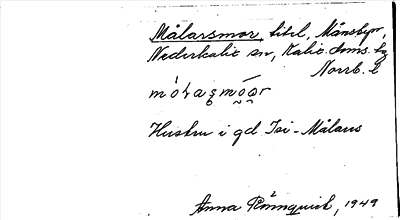 Målarsmor, titel, Månsbyn,
Nederkalix sn, Kalix doms. hg
Norrb. l
Hustru i gd Isi-Målars
Anna Rönnqvist, 1949